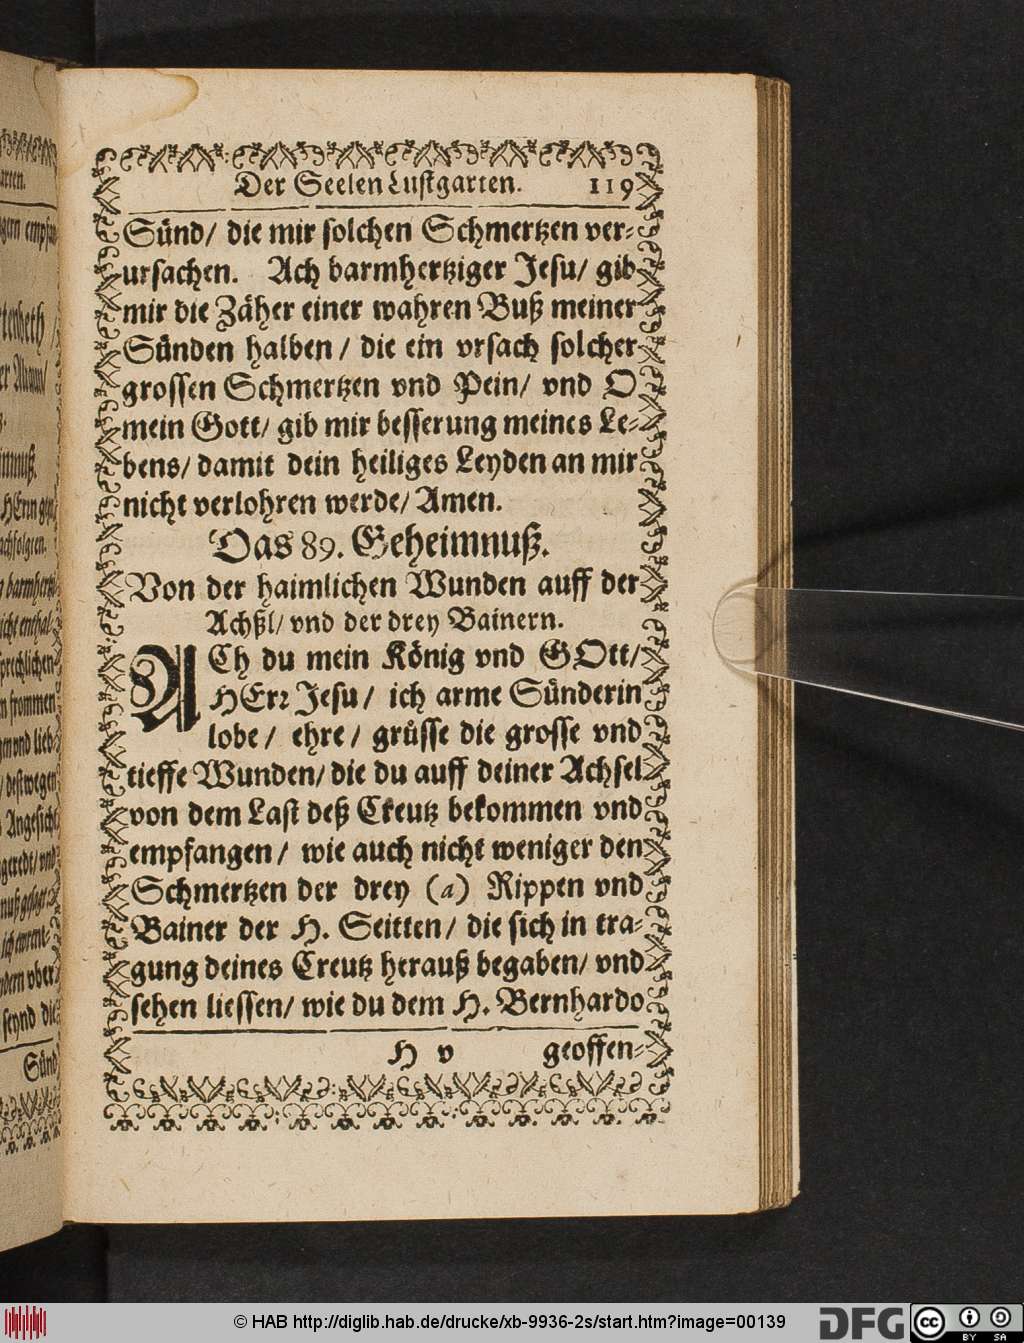 Der Seelen Lustgarten. 119
Sünd/ die mir solchen Schmertzen ver-
ursachen. Ach barmhertziger Jesu/ gib
mir die Zäher einer wahren Buß meiner
Sünden halben / die ein vrsach solcher
grossen Schmertzen vnd Pein/ vnd O
mein Gott/ gib mir besserung meines Le-
bens/ damit dein heiliges Leyden an mir
nicht verlohren werde/ Amen.
Das 89. Geheimnuß.
Von der haimlichen Wunden auff der
Achßl/ vnd der drey Bainern.
ACh du mein König vnd GOtt/
HErr Jesu / ich arme Sünderin
lobe / ehre / grüsse die grosse vnd
tieffe Wunden/ die du auff deiner Achsel
von dem Last deß Creutz bekommen vnd
empfangen / wie auch nicht weniger den
Schmertzen der drey (a) Rippen vnd
Bainer der H. Seitten / die sich in tra-
gung deines Creutz herauß begaben/ vnd
sehen liessen/ wie du dem H. Bernhardo
H v geoffen-
© HAB http://diglib.hab.de/drucke/xb-9936-2s/start.htm?image=00139
DFG
cc BY SA